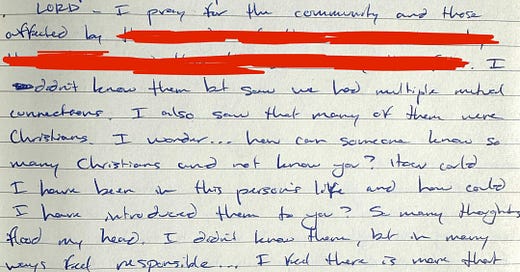 LORD - I pray for the community and those
affected by
I
didn't know them but saw we had multiple mutual
connections. I also saw that many of them were
Christians. I wonder... how can someone know so
many Christians and not know you? How could
I have been in this person's life and how could
I have introduced them to you? So many thoughts
flood my head. I didn't know them, but in many
ways feel responsible... I feel there is more that